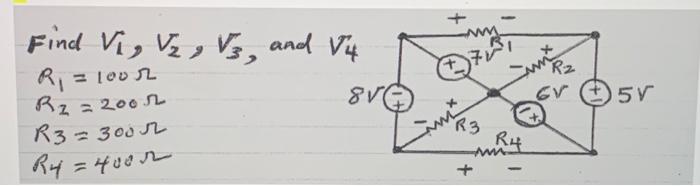 Find V1, V2, V3, and V4
R1 = 100 Ω
R2 = 200 Ω
R3 = 300 Ω
R4 = 400 Ω
+ -
R1
7V
+ -
+
- R2
8V
- +
6V
- +
+ -
5V
+
- R3
R4
+ -